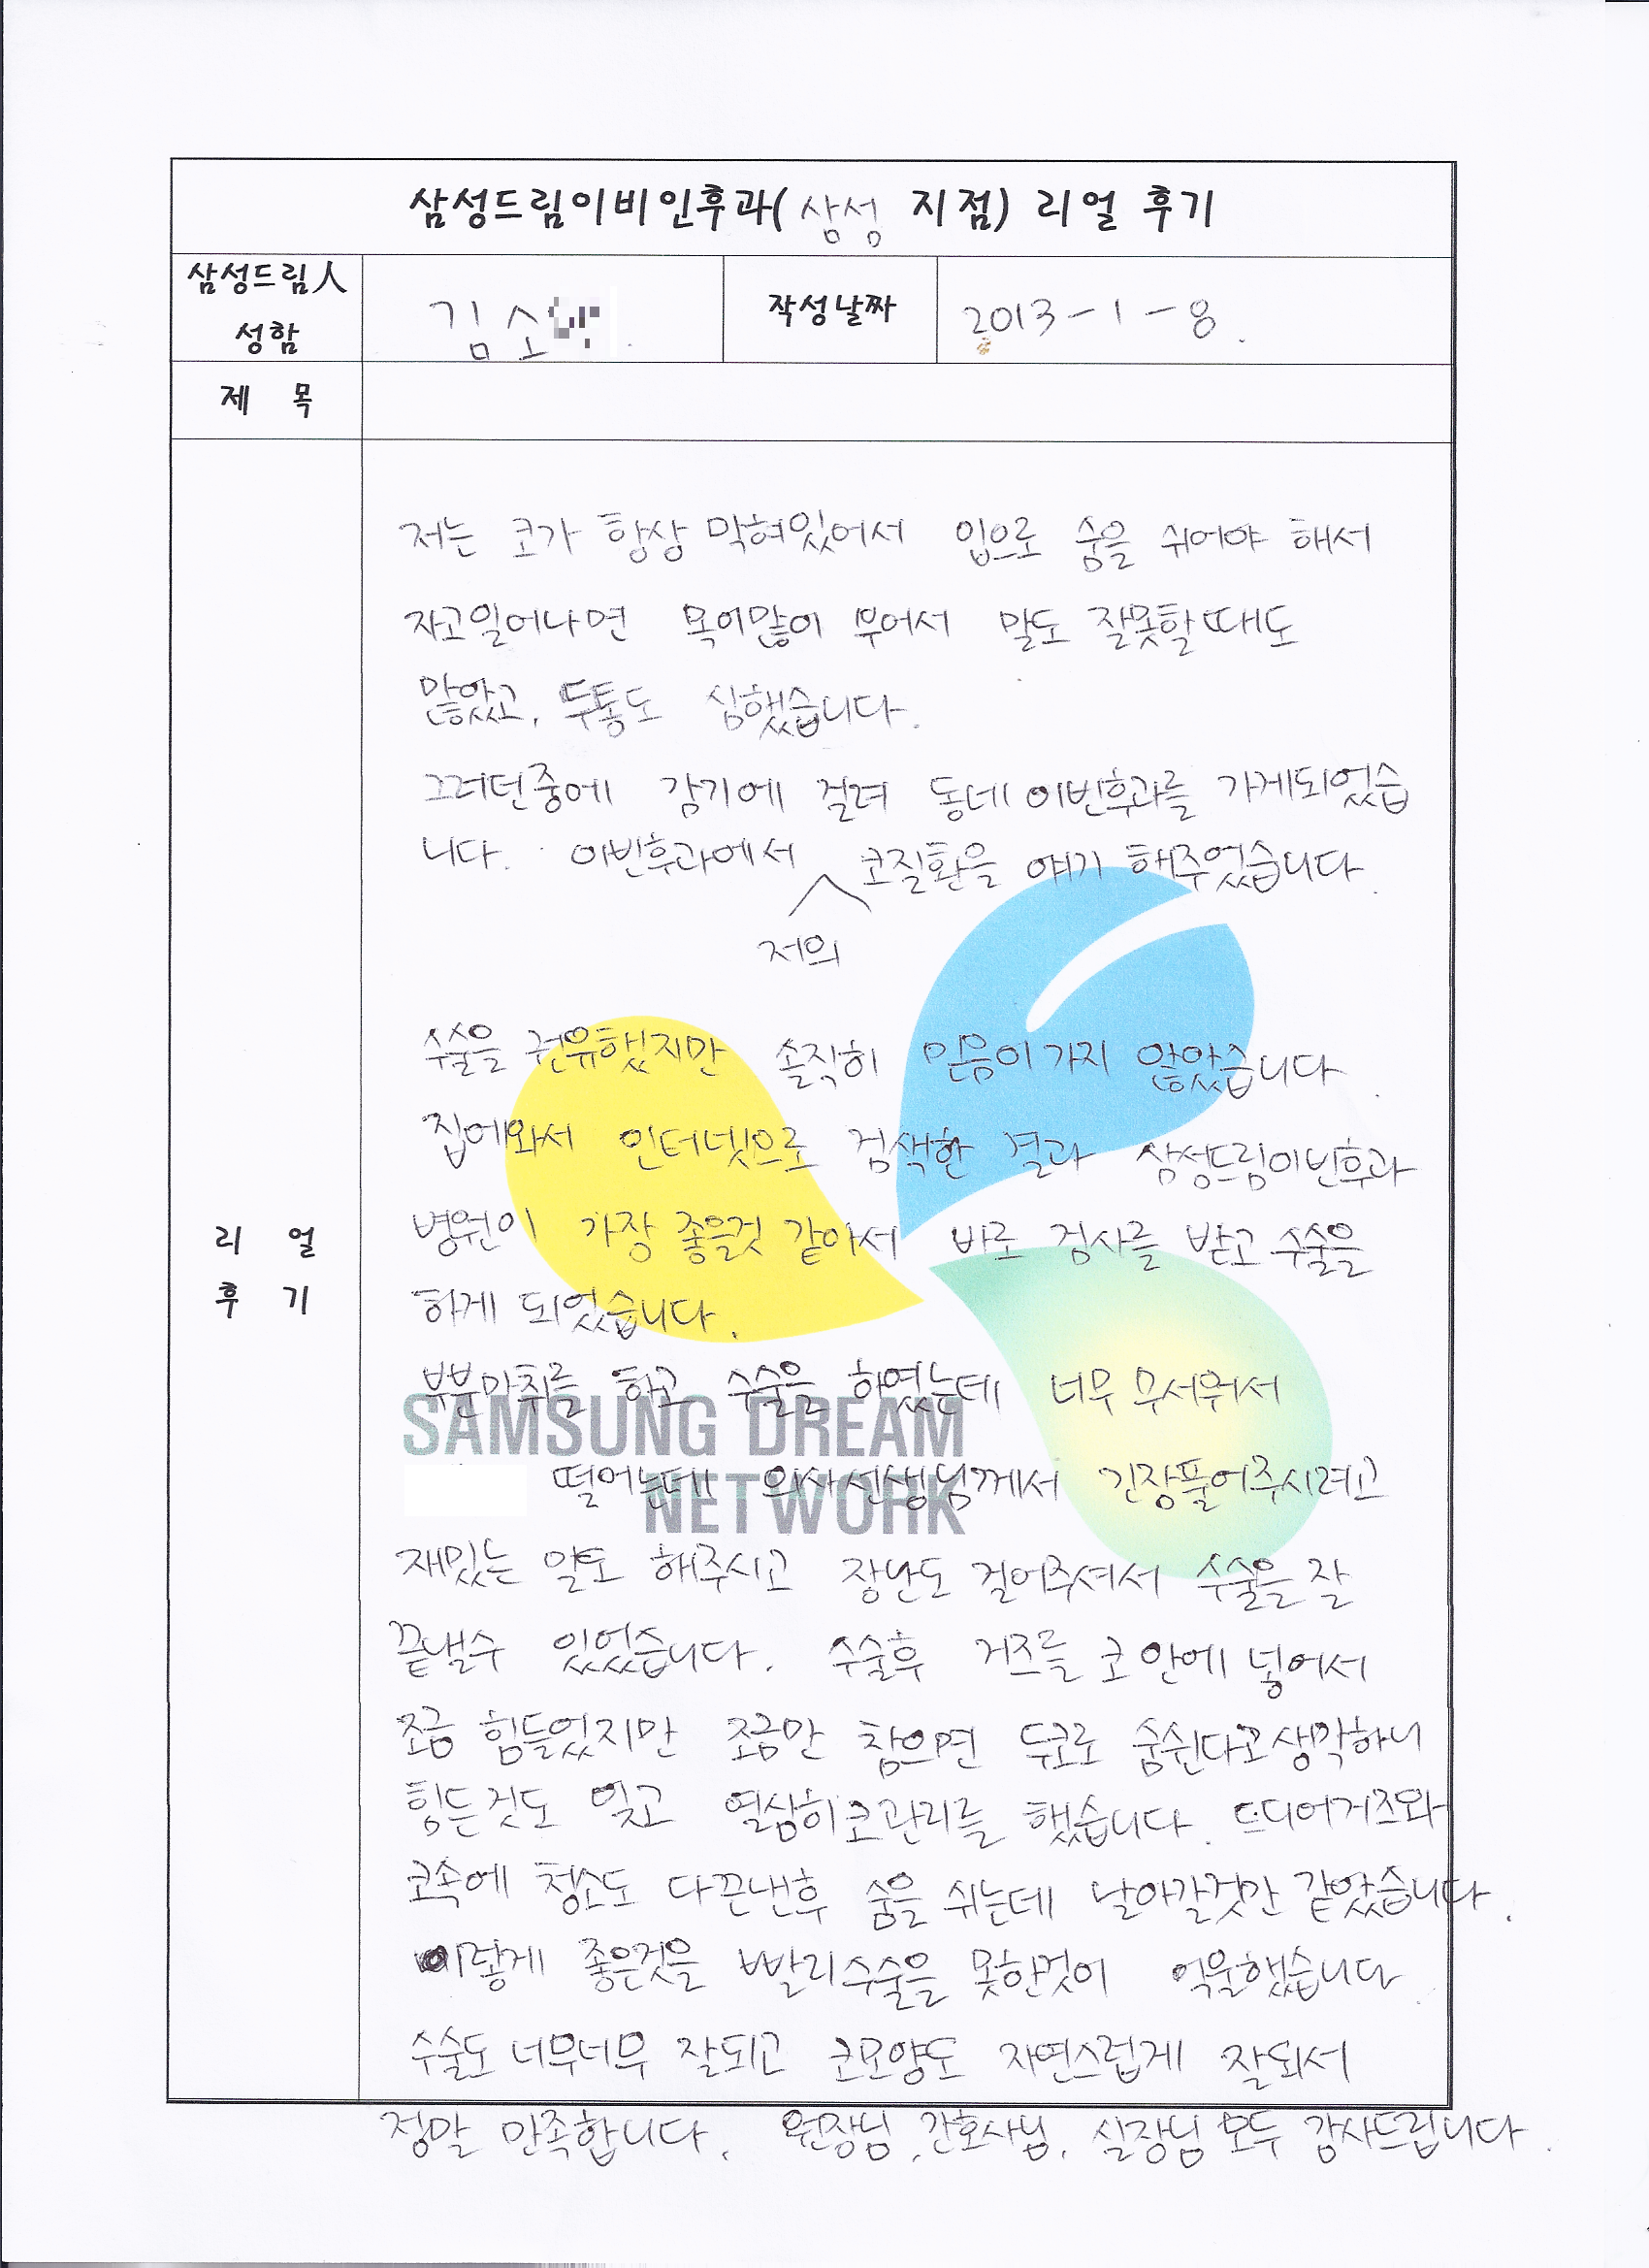 삼성드림이비인후과( 삼성 지점) 리얼 후기
삼성드림人
성함
김소
작성날짜
2013-1-8.
제 목
리 얼
후 기
저는 코가 항상 막혀있어서 입으로 숨을 쉬어야 해서
자고일어나면 목이많이 부어서 말도 잘못할때도
많았고, 두통도 심했습니다.
그러던중에 감기에 걸려 동네이빈후과를 가게되었습
니다. 이빈후과에서 코질환을 얘기 해주었습니다.
저의
수술을 권유했지만 솔직히 믿음이가지 않았습니다.
집에와서 인터넷으로 검색한 결과 삼성드림이빈후과
병원이 가장 좋을것 같아서 바로 검사를 받고 수술을
하게 되었습니다.
부분마취를 하고 수술을 하였는데 너무 무서워서
떨어는데 의사선생님께서 긴장풀어주시려고
재밌는 말도 해주시고 장난도 걸어주셔서 수술을 잘
끝낼수 있었습니다. 수술후 거즈를 코 안에 넣어서
조금 힘들었지만 조금만 참으면 두코로 숨쉰다고생각하니
힘든것도 잊고 열심히코관리를 했습니다. 드디어거즈와
코속에 청소도 다끈낸후 숨을 쉬는데 날아갈것만 같았습니다.
이렇게 좋은것을 빨리수술을 못한것이 억울했습니다.
수술도 너무너무 잘되고 코모양도 자연스럽게 잘되서
정말 만족합니다. 원장님, 간호사님, 실장님 모두 감사드립니다.
SAMSUNG DREAM
NETWORK